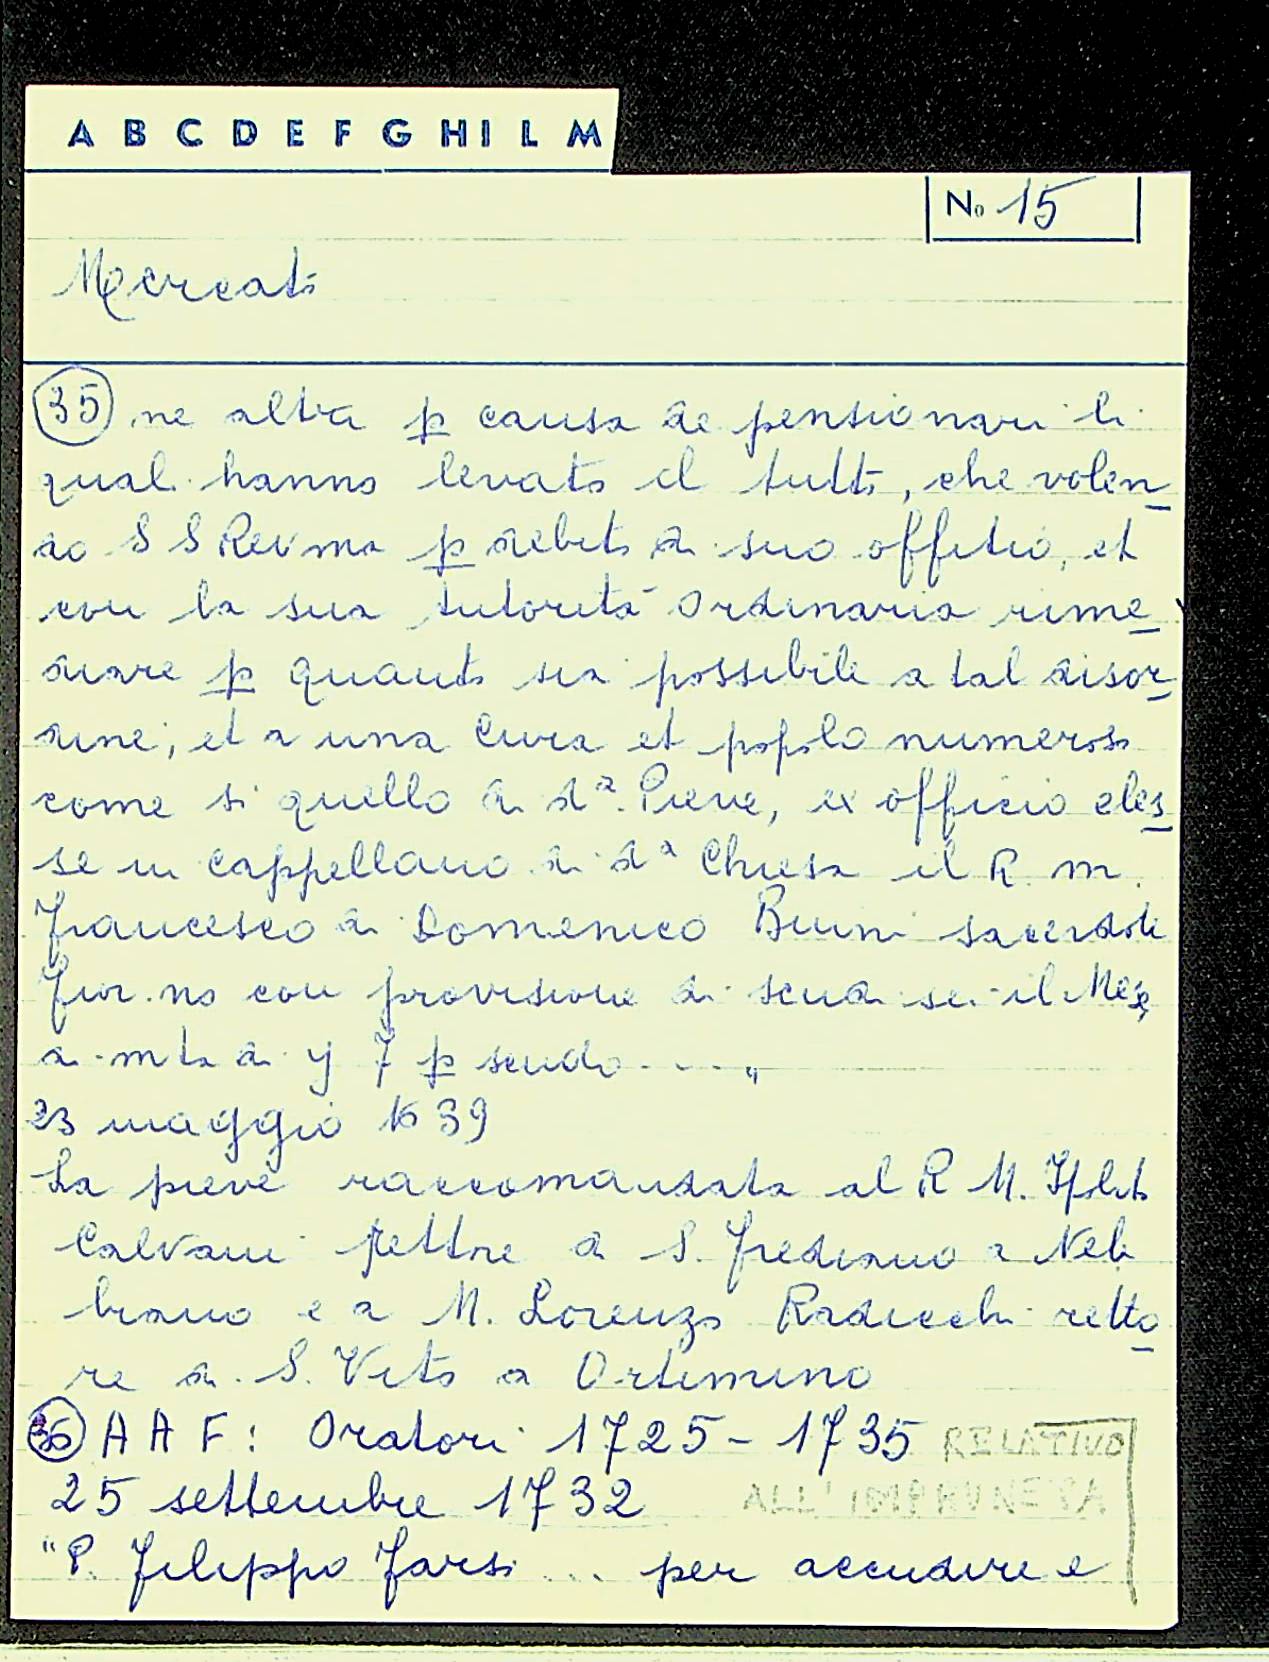 A B C D E F G H I L M
No 15
Mercati
35 ne altra p causa de pensionari li
quali hanno levato il tutto, che volen
do S S Revma p debito di suo offitio, et
con la sua autorità ordinaria rime
diare p quanto sia possibile a tal disor
dine, et a una Cura et popolo numeroso
come si quello di da. Pieve, ex officio eles
se in Cappellano di da Chiesa il R. m.
Francesco di Domenico Buini sacerdote
fior.no con provisione di scudi sei il Mese,
di mta di y 7 p scudo . . . "
23 maggio 1639
La pieve raccomandata al R M. Ipolito
Calvani rettore di S. Frediano a Neb
biano e a M. Lorenzo Radicchi retto
re di S. Vito a Ortimino
36 A A F: Oratori 1725 - 1735
RELATIVO
ALL'IMPRUNETA
25 settembre 1732
"P. Filippo Farsi ... per accudire e